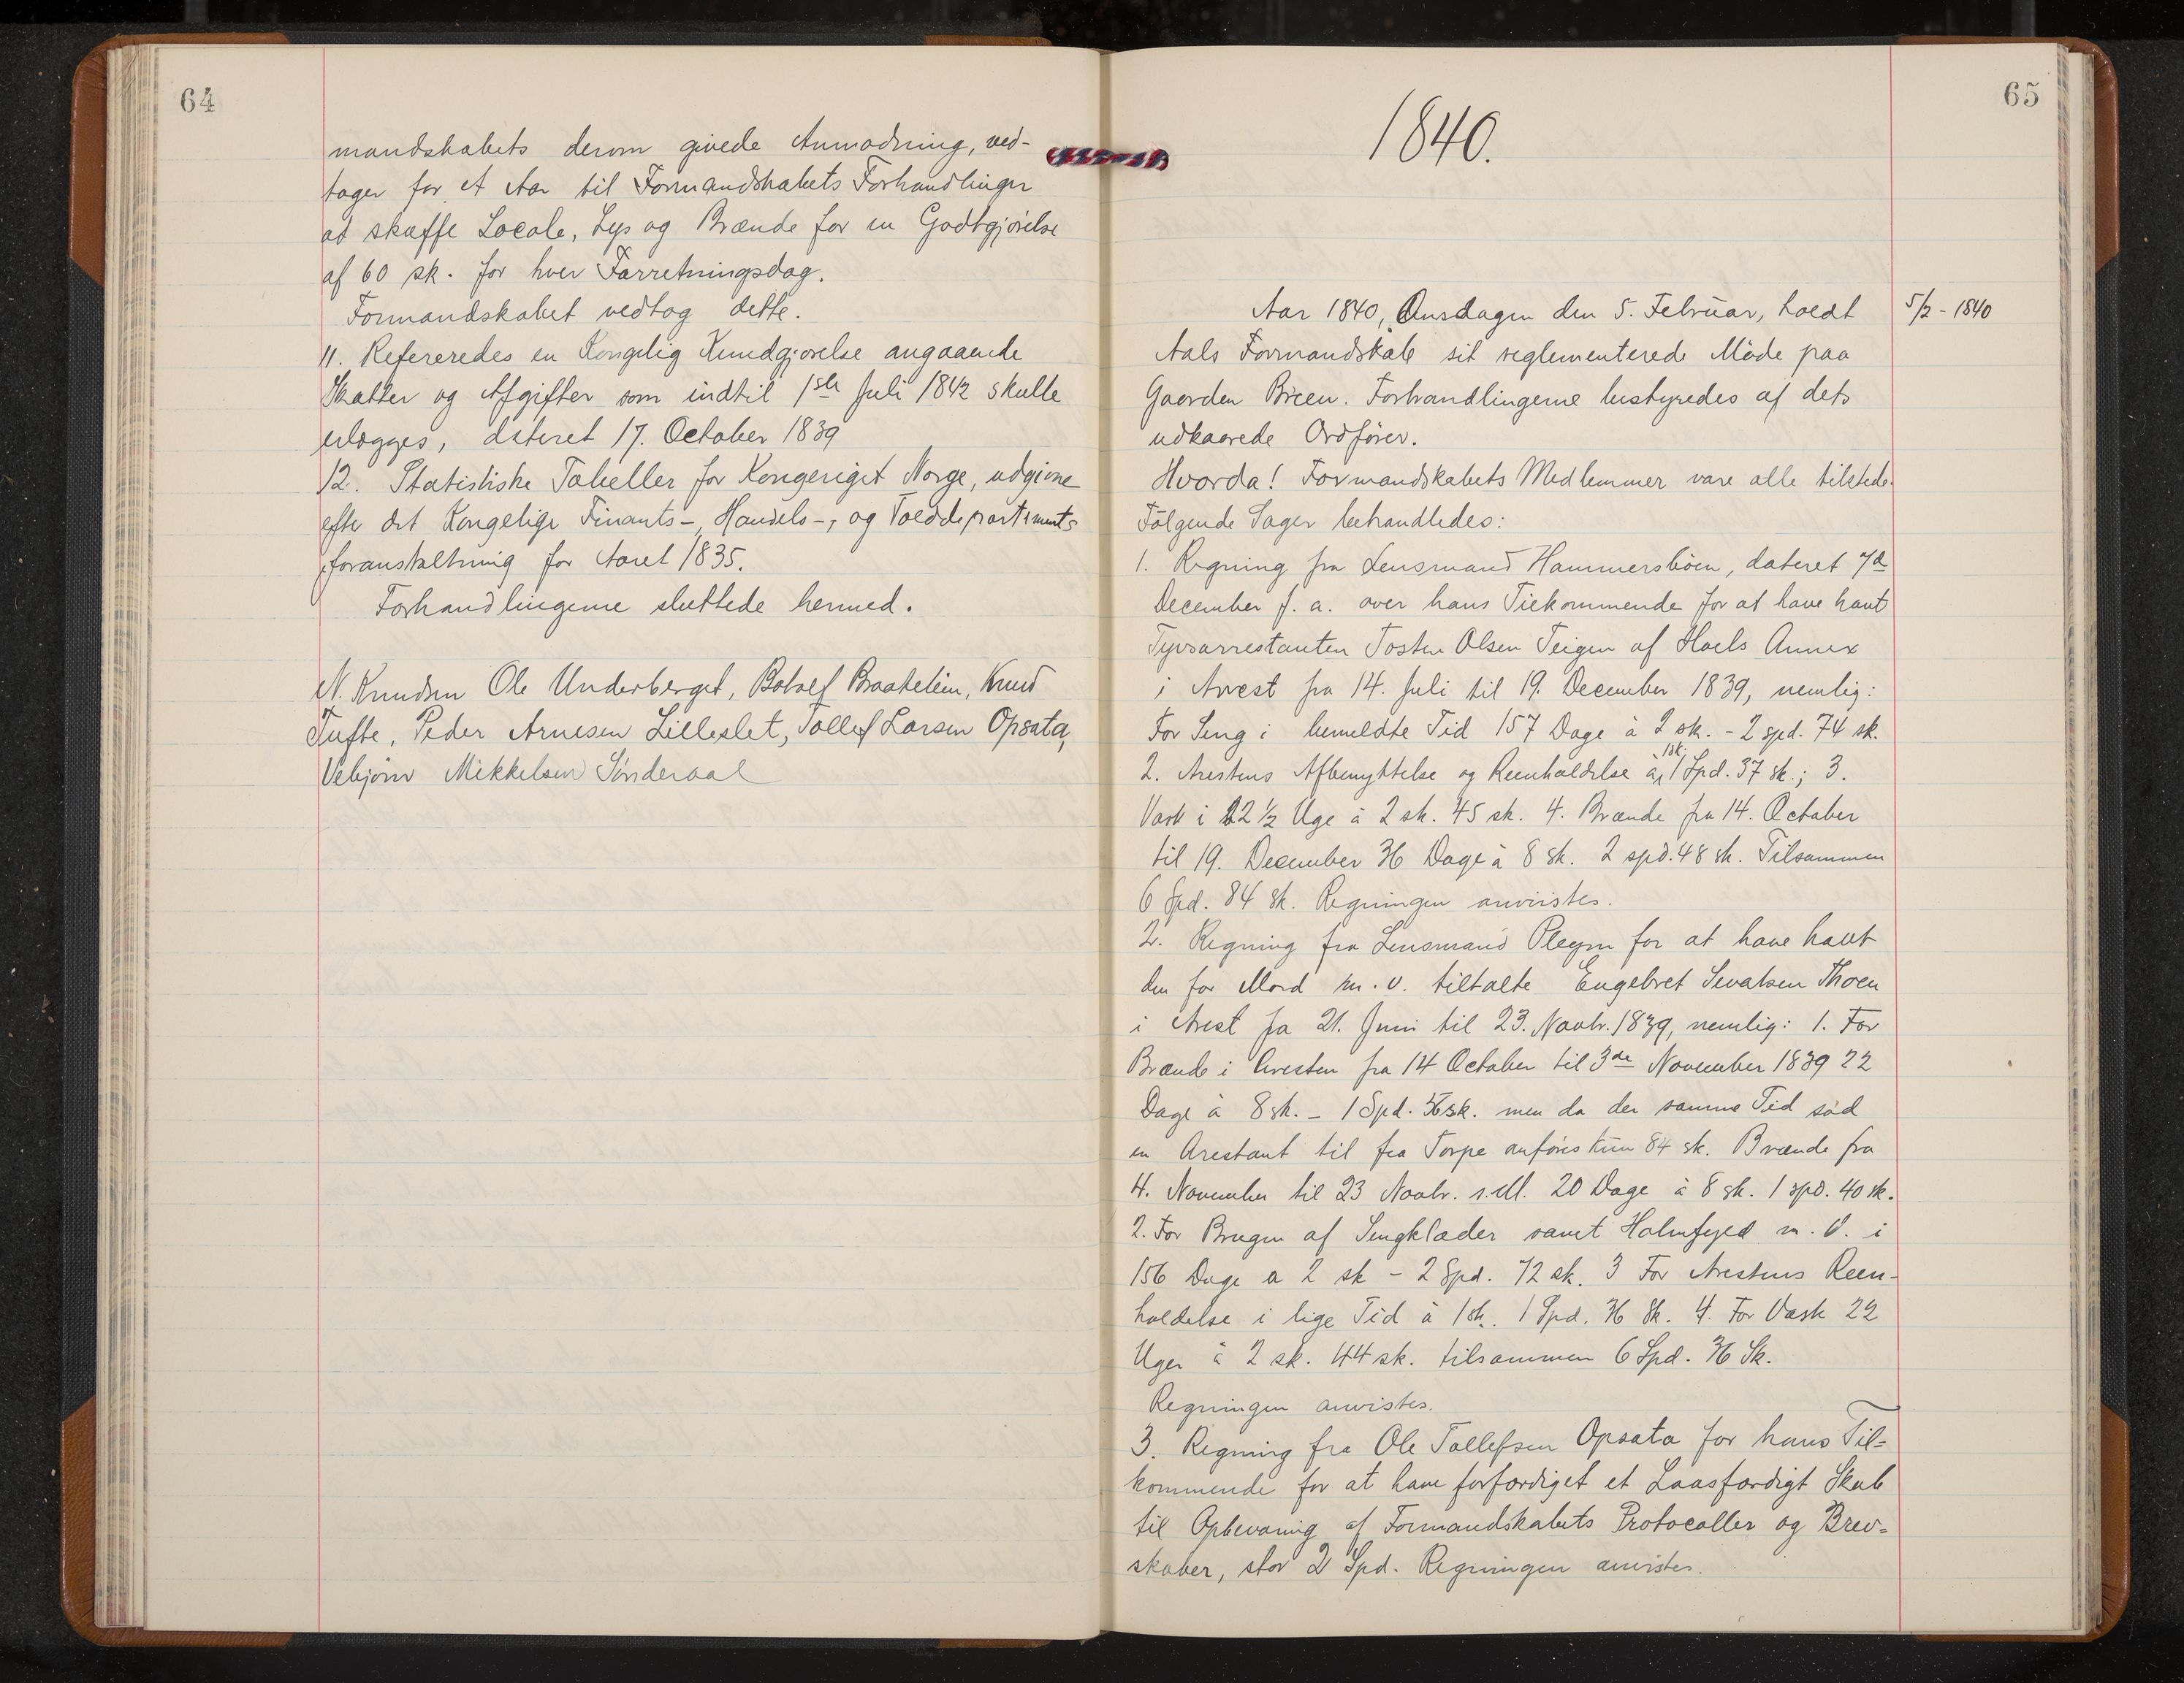 64
mandskabets derom givede Anmodning, ved-
tager for et Aar til Formandskabets Forhandlinger
at skaffe Locale, Lys og Brænde for en Godtgjörelse
af 60 sk. for hver Forretningsdag.
Formandskabet vedtog dette.
11. Refereredes en Kongelig Kundgjørelse angaaende
Skatter og Afgifter som indtil 1ste Juli 1842 skulle
erlægges, dateret 17. October 1839
12. Statistiske Tabeller for Kongeriget Norge, udgivne
efter det Kongelige Finants-, Handels-, og Tolddepartements
foranstaltning for Aaret 1835.
Forhandlingerne sluttede hermed.
N. Knudsen Ole Underberget, Botolf Braateleim, Knud
Tufte, Peder Arnesen Lilleslet, Tollef Larsen Opsata,
Vebjörn Mikkelsen Sönderaal
65
1840.
5/2 - 1840
Aar 1840, Onsdagen den 5. Februar, holdt
Aals Formandskab sit reglementerede Möde paa
Gaarden Breen. Forhandlingerne bestyredes af dets
udkaarede Ordförer.
Hvorda! Formandskabets Medlemmer vare alle tilstede.
Fölgende Sager behandledes:
1. Regning fra Lensmand Hammersböen, dateret 7de
December f. a. over hans Tilkommende for at have havt
Tyvsarrestanten Tosten Olsen Teigen af Hols Annex
i Arrest fra 14. Juli til 19. December 1839, nemlig:
For Seng i bemeldte Tid 157 Dage à 2 sk. - 2 spd. 74 sk.
2. Arestens Afbenyttelse og Reenholdelse à 1sk. 1 Spd. 37 sk.; 3.
Vask i 22 ½ Uge à 2 sk. 45 sk. 4. Brænde fra 14. October
til 19. December 36 Dage à 8 sk. 2 spd. 48 sk. Tilsammen
6 Spd. 84 sk. Regningen anviistes.
2. Regning fra Lensmand Pleym for at have havt
den for Mord m. v. tiltalte Engebret Sevatsen Thoen
i Arest fra 21. Juni til 23. Novbr. 1839, nemlig: 1. For
Brænde i Aresten fra 14 October til 3de November 1839 22
Dage à 8 sk. - 1 Spd. 56 sk. men da der samme Tid sad
en Arestant til fra Torpe anföres kun 84 sk. Brænde fra
4. November til 23 Novbr. s. M. 20 Dage à 8 sk. 1 spd. 40 sk.
2. For Brugen af Sengklæder samt Halmfyld m. V. i
156 Dage a 2 sk - 2 Spd. 72 sk. 3 For Arestens Reen-
holdelse i lige Tid à 1 sk. 1 Spd. 36 Sk. 4. For Vask 22
Uger à 2 sk. 44 sk. tilsammen 6 Spd. 36 Sk.
Regningen anvistes.
3. Regning fra Ole Tollefsen Opsata for hans Til=
kommende for at have forfærdiget et Laasfærdigt Skab
til Opbevaring af Formandskabets Protocoller og Brev=
skaber, stor 2 Spd. Regningen anvistes.